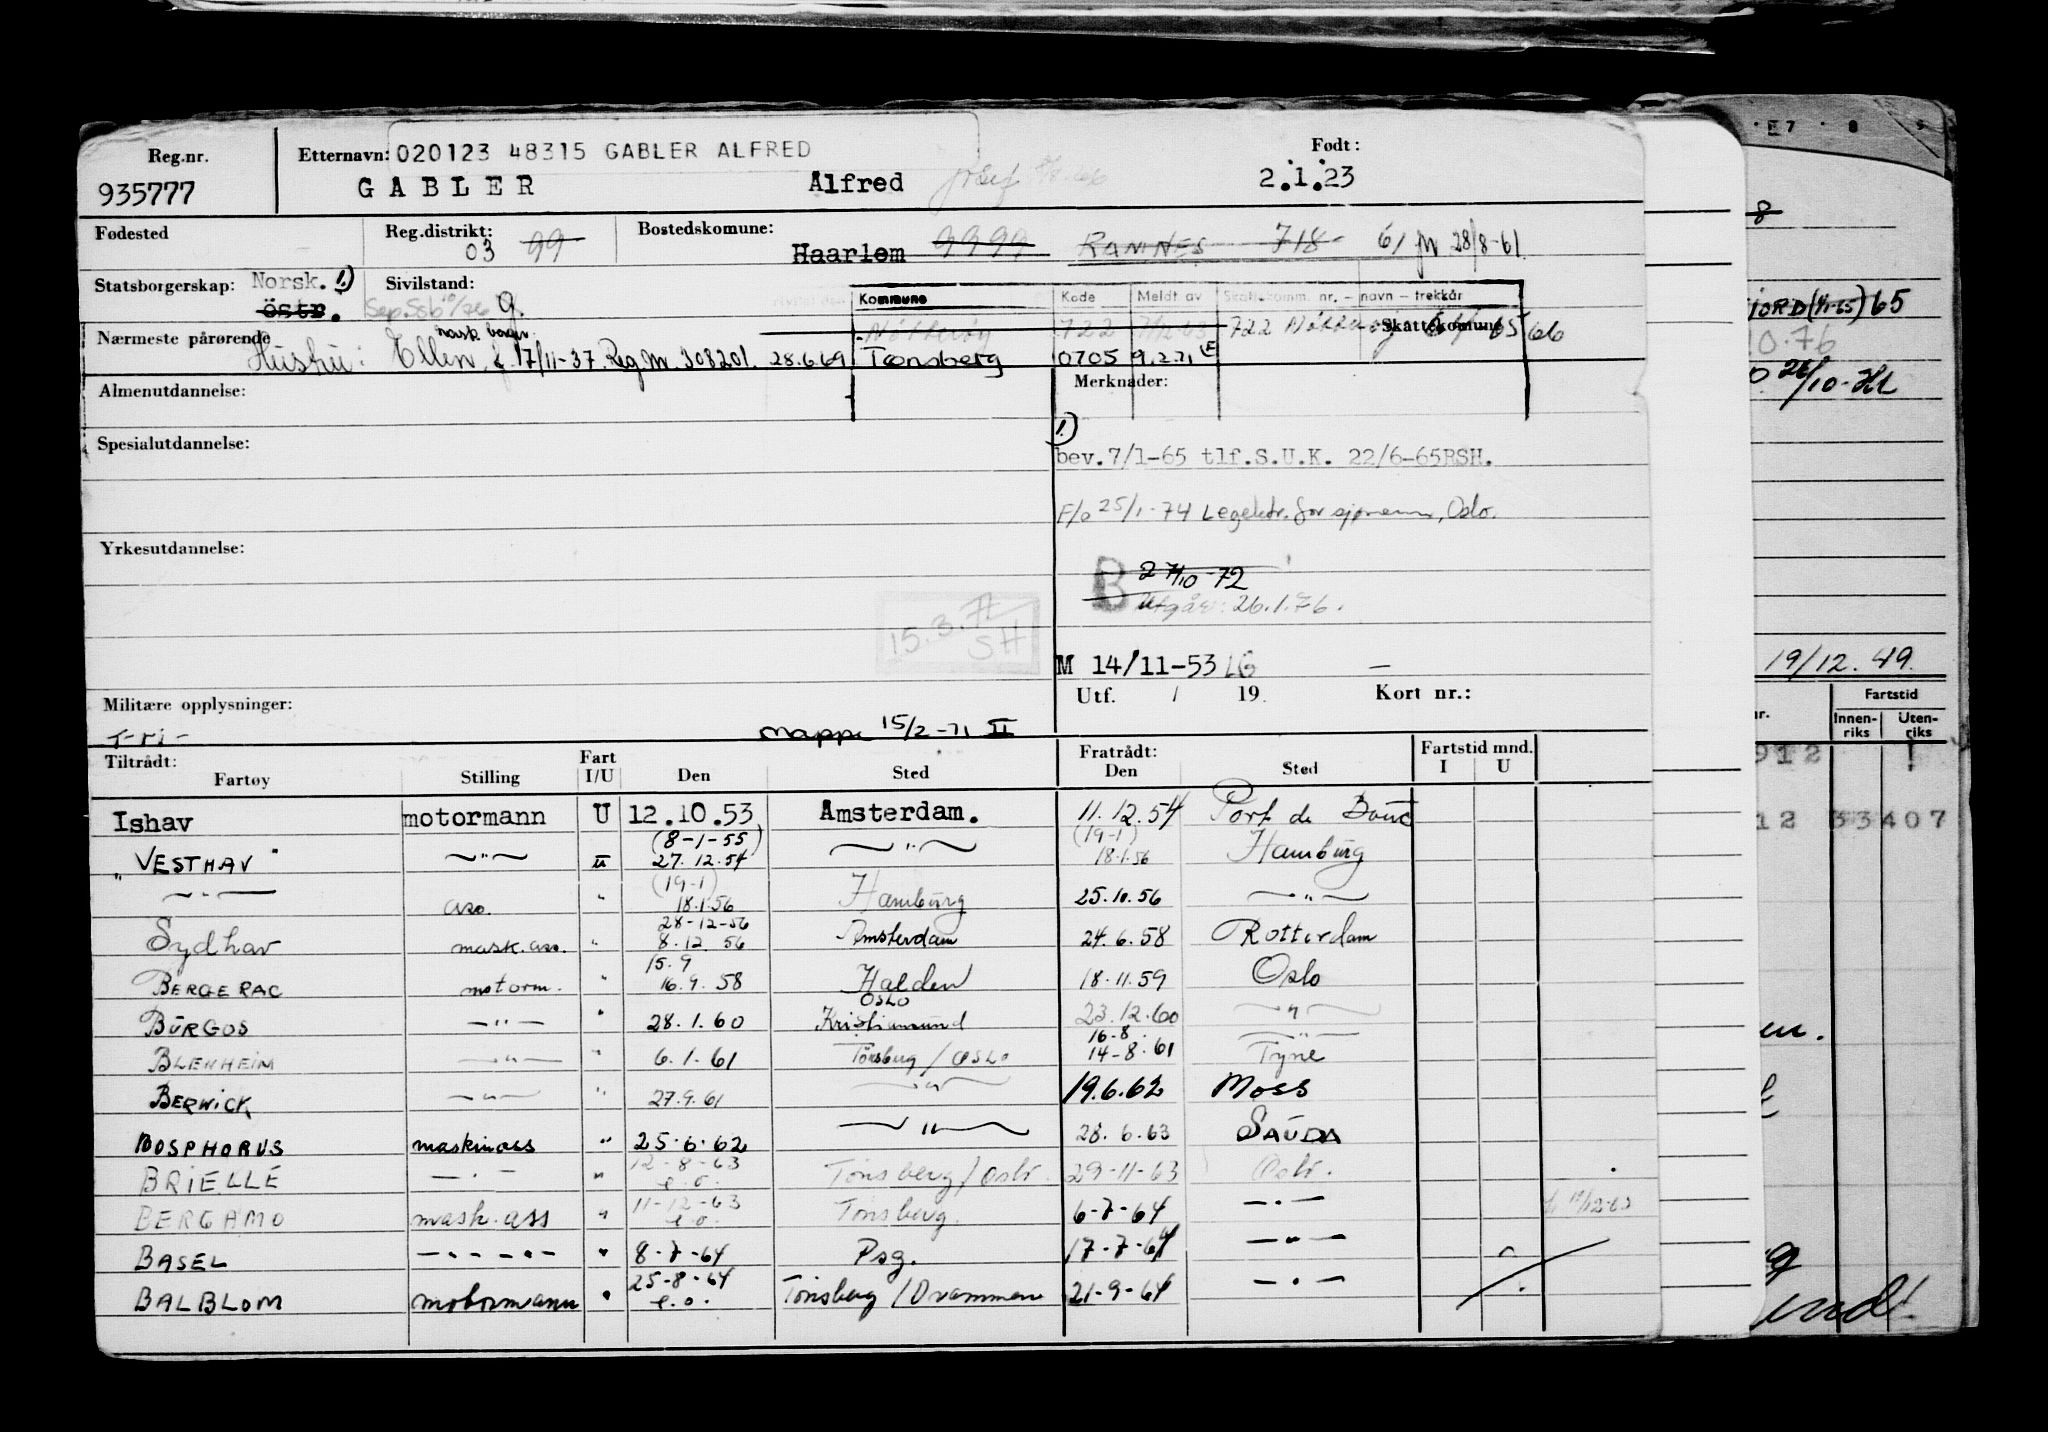 Reg.nr. Etternavn: 020123 48315 GABLER ALFRED Født:
935777 GABLER Alfred 2.1.23
Fødested Reg.distrikt: 03 99 Bostedskomune: Haarlem 9999 RAMNES 718 61 28/8-61
Statsborgerskap: Norsk. 1) Sivilstand: g.
östr. Kommune Kode Meldt av Skattekomm. nr. – navn – trekkår
norsk borger. 722 722 Skattekomune 65 66
Nærmeste pårørende Hustru: Ellen, f. 17/11-37. Reg.nr. 308201. 28.6.69 Tønsberg 0705 9.2.71
Almenutdannelse: Merknader:
1)
Spesialutdannelse: bev.7/1-65 tlf.S.U.K. 22/6-65RSH.
F/o 25/1-74 Legektr. for sjømenn, Oslo.
Yrkesutdannelse:
B 27/10-72
Utgår: 26.1.76.
15.3.71
SH
M 14/11-53 LG –
Utf. / 19. Kort nr.:
Militære opplysninger:
Mappe 15/2-71 II
Tiltrådt: Fart Fratrådt: Fartstid mnd.
Fartøy Stilling I/U Den Sted Den Sted I U
Ishav motormann U 12.10.53 Amsterdam. 11.12.54 Port de Bouc
(8-1-55) (19-1)
"VESTHAV" —"— " 27.12.54 —"— 18.1.56 Hamburg
(19-1)
—"— ass. " 18.1.56 Hamburg 25.10.56 —"—
28-12-56
Sydhav mask.ass. " 8.12.56 Amsterdam 24.6.58 Rotterdam
15.9
BERGERAC motorm. " 16.9.58 Halden 18.11.59 Oslo
OSLO
BURGOS —"— " 28.1.60 Kristiansund 23.12.60 —"—
16-8. —"—
BLENHEIM —"— " 6.1.61 Tönsberg / OSLO 14-8.61 Tyne
BERWICK —"— " 27.9.61 —"— 19.6.62 Moss
BOSPHORUS maskinass " 25.6.62 —"— 28.6.63 SAUDA
BRIELLE —.— " 12-8-63 e.o. Tönsberg/Oslo. 29-11-63 Oslo.
BERGAMO mask.ass " 11-12-63 e.o. Tönsberg. 6-7-64 —.—
BASEL —.—.—.— " 8-7-64 Psg. 17-7-64 —.—
BALBLOM motormann " 25-8-64 e.o. Tönsberg / Drammen 21-9-64 —.—
E7 8 9
8
65
10.76
26/10-
19/12.49.
Fartstid
Innen-
riks
Uten-
riks
912
12 33407